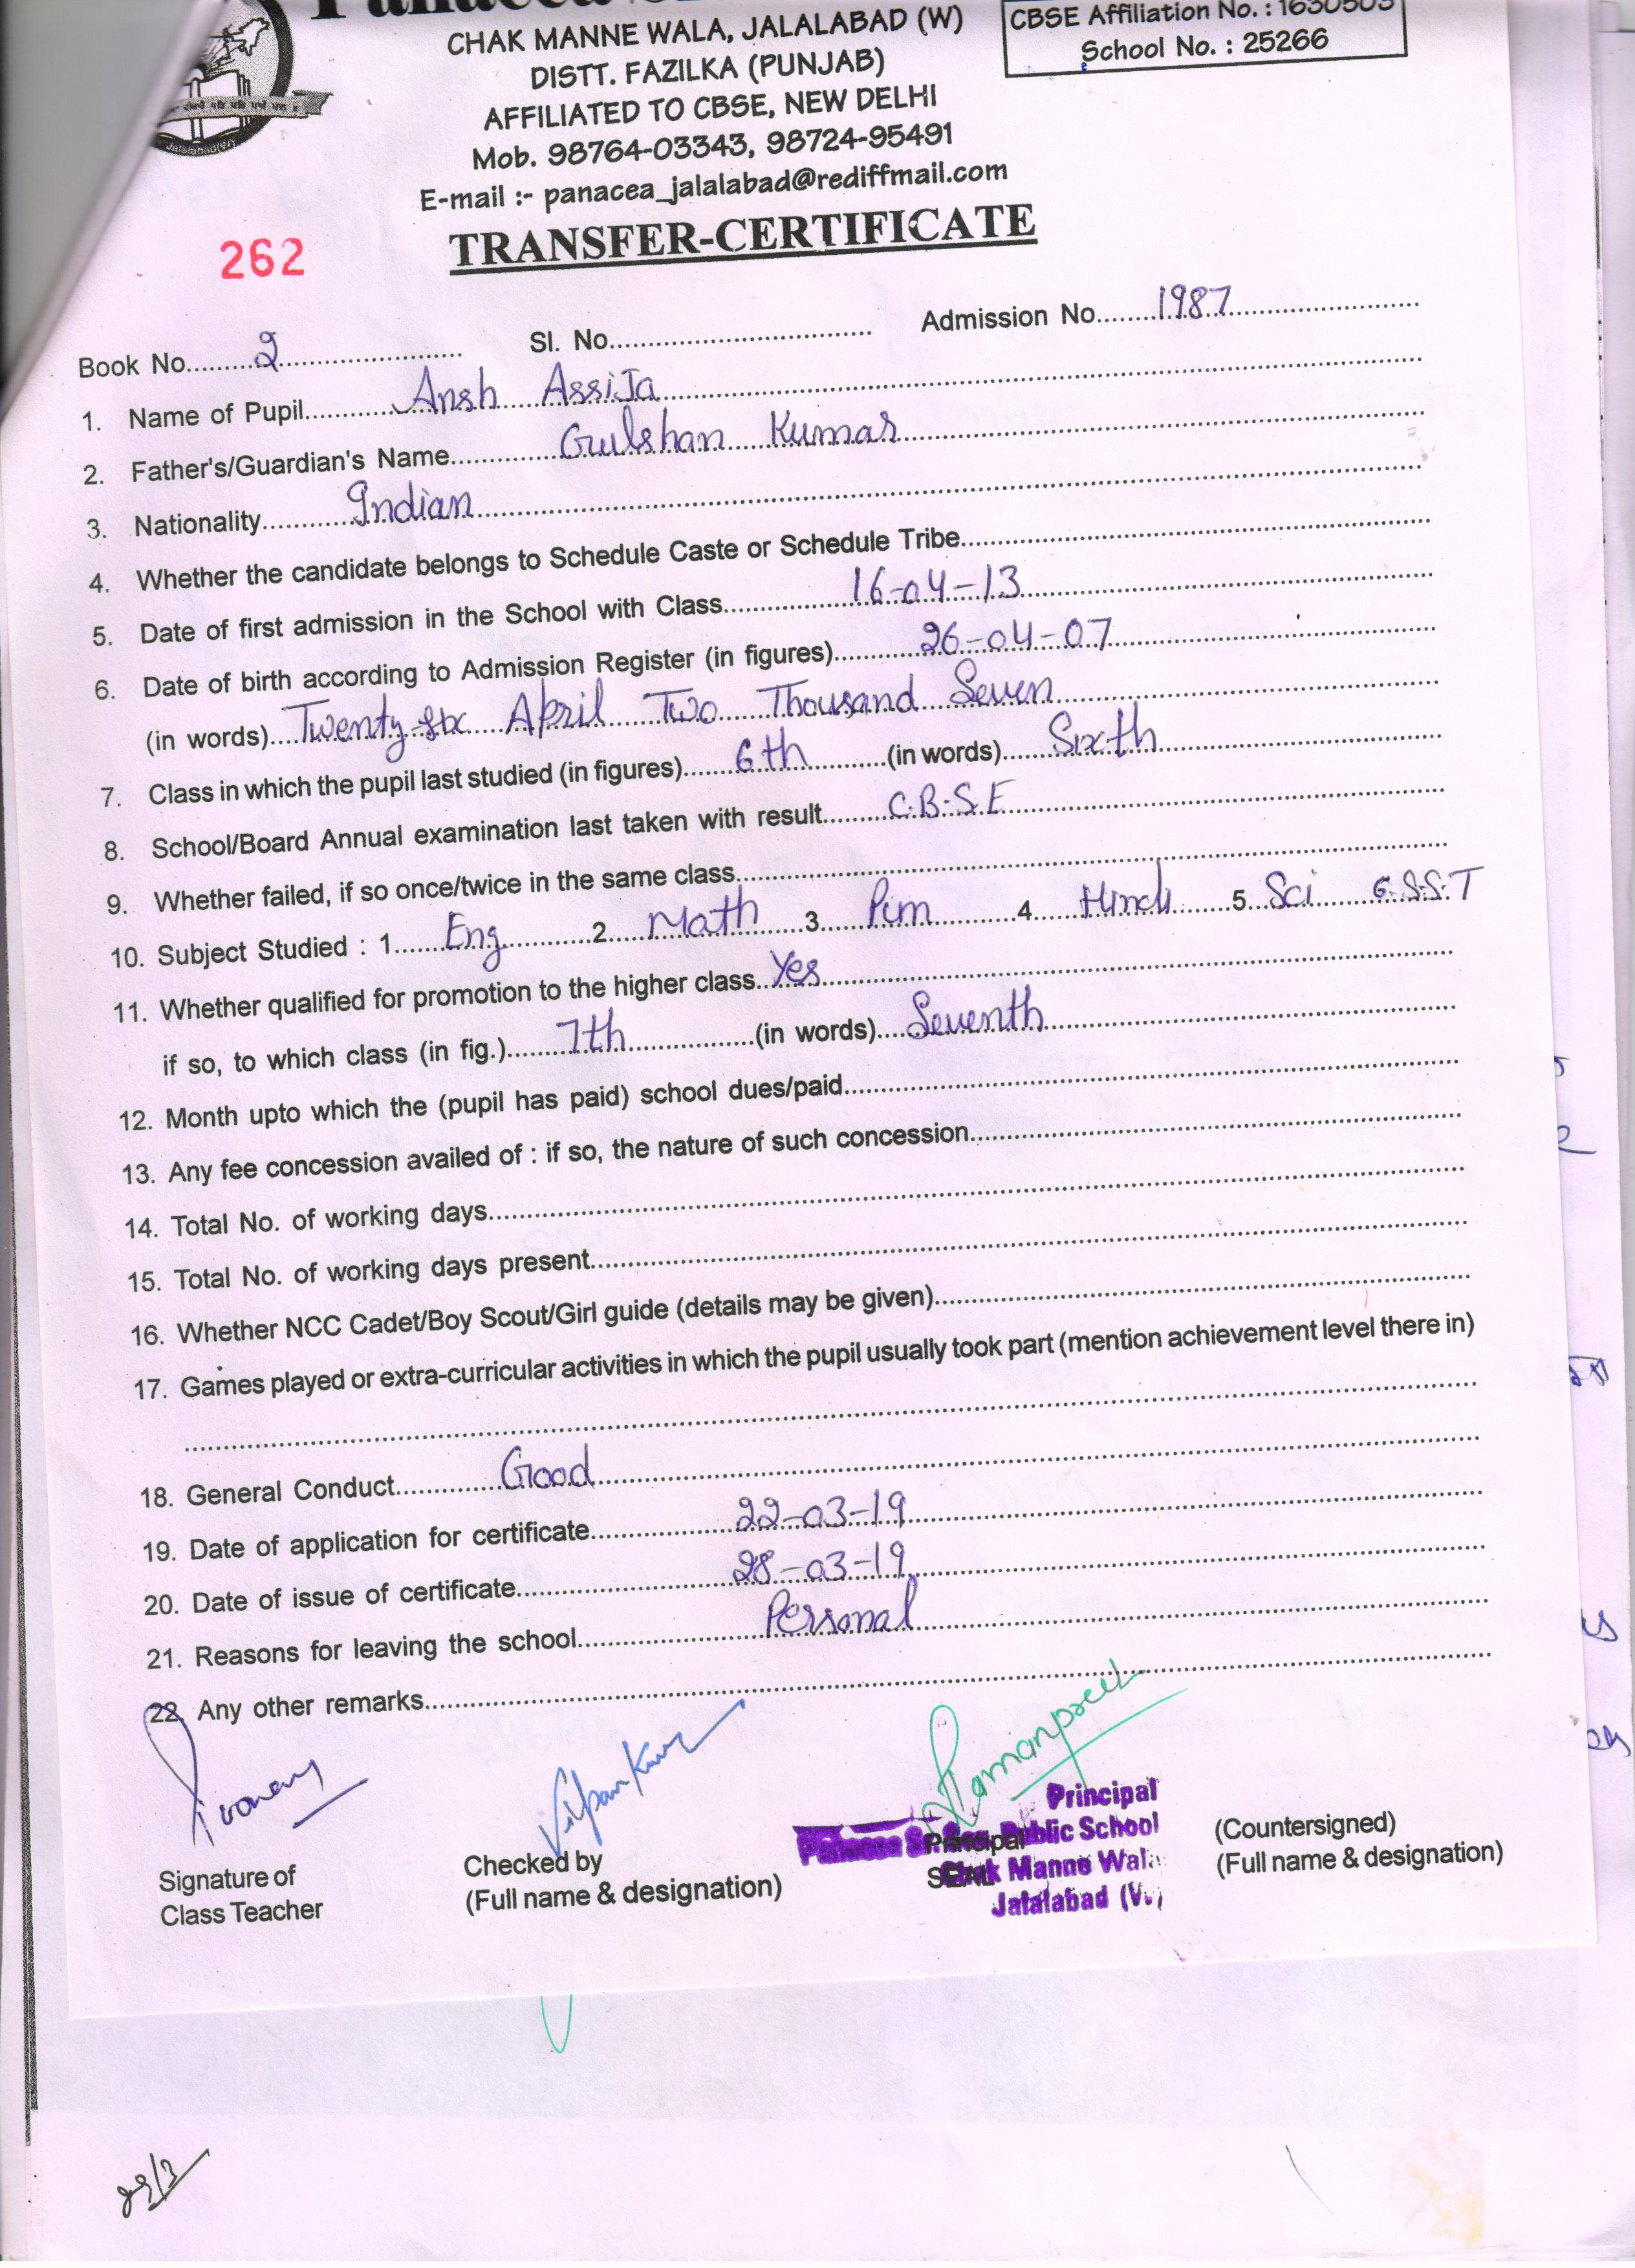 Panacea
CHAK MANNE WALA, JALALABAD (W)
DISTT. FAZILKA (PUNJAB)
AFFILIATED TO CBSE, NEW DELHI
Mob. 98764-03343, 98724-95491
E-mail :- panacea_jalalabad@rediffmail.com
CBSE Affiliation No. : 1630503
School No. : 25266
Jalalabad(W)
TRANSFER-CERTIFICATE
262
Book No. 2 Sl. No. Admission No. 1987
1. Name of Pupil Ansh AssiJa
2. Father's/Guardian's Name Gulshan Kumar
3. Nationality Indian
4. Whether the candidate belongs to Schedule Caste or Schedule Tribe
5. Date of first admission in the School with Class 16-04-13
6. Date of birth according to Admission Register (in figures) 26-04-07
(in words) Twenty six April Two Thousand Seven
7. Class in which the pupil last studied (in figures) 6th (in words) Sixth
8. School/Board Annual examination last taken with result C.B.S.E
9. Whether failed, if so once/twice in the same class
10. Subject Studied : 1 Eng 2 Math 3 Pun 4 Hindi 5 Sci 6. S.S.T
11. Whether qualified for promotion to the higher class Yes
if so, to which class (in fig.) 7th (in words) Seventh
12. Month upto which the (pupil has paid) school dues/paid
13. Any fee concession availed of : if so, the nature of such concession
14. Total No. of working days
15. Total No. of working days present
16. Whether NCC Cadet/Boy Scout/Girl guide (details may be given)
17. Games played or extra-curricular activities in which the pupil usually took part (mention achievement level there in)
18. General Conduct Good
19. Date of application for certificate 22-03-19
20. Date of issue of certificate 28-03-19
21. Reasons for leaving the school Personal
22. Any other remarks
Ramanpreet
Principal
Public School
Chak Manne Wala
Jalalabad (W)
Signature of
Class Teacher
Checked by
(Full name & designation)
Principal
SEAL
(Countersigned)
(Full name & designation)